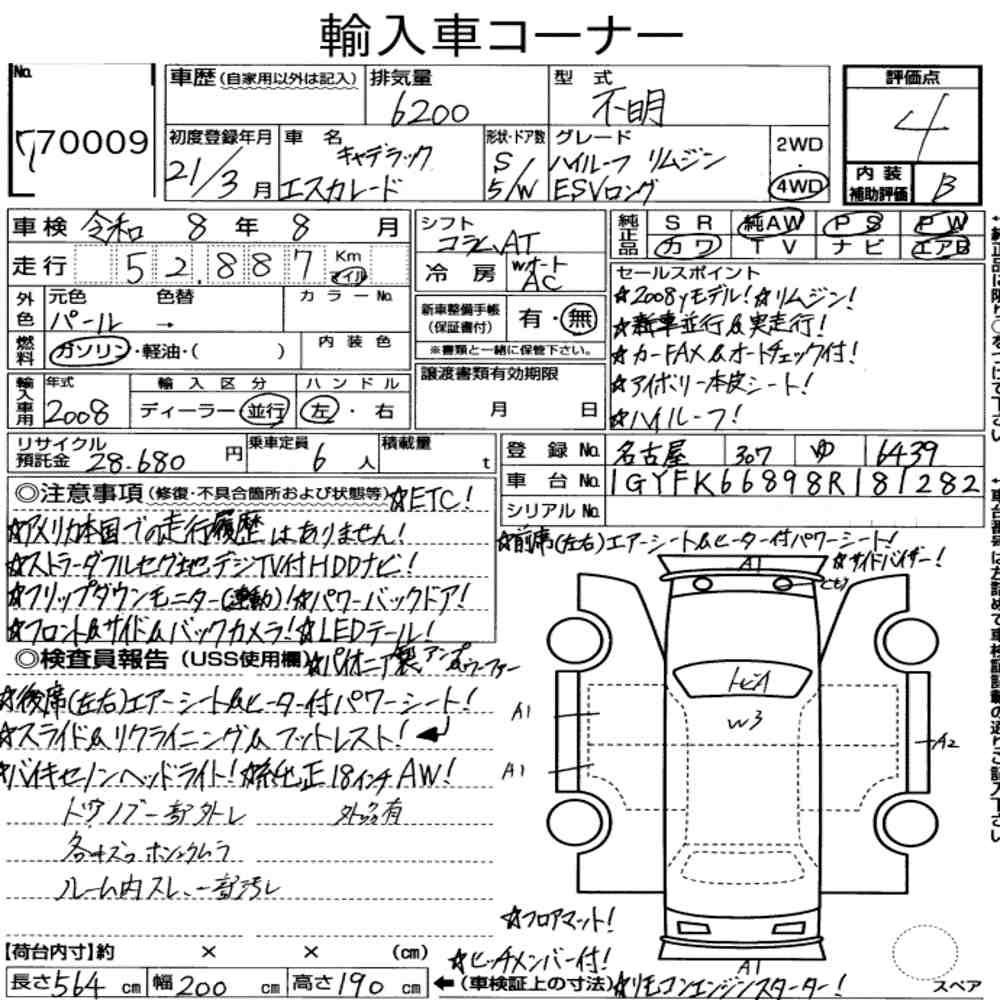 輸入車コーナー
No. 770009
車歴(自家用以外は記入) 排気量 6200 型式 不明 評価点 4
初度登録年月 21/3月 車名 キャデラック エスカレード 形状・ドア数 S 5/W グレード ハイルーフ リムジン ESVロング 2WD・4WD 内装補助評価 B
車検 令和 8年 8月 シフト コラムAT 純正品 SR 純AW PS PW
カワ TV ナビ エアB
走行 52,887 Km マイル 冷房 Wオート AC
セールスポイント
☆2008yモデル!☆リムジン!
☆新車並行&実走行!
☆カーFAX&オートチェック付!
☆アイボリー本皮シート!
☆ハイルーフ!
外色 元色 パール → 色替 カラーNo.
新車整備手帳(保証書付) 有・無
※書類と一緒に保管下さい。
燃料 ガソリン・軽油・( ) 内装色
譲渡書類有効期限 月 日
輸入車用 年式 2008 輸入区分 ディーラー・並行 ハンドル 左・右
リサイクル預託金 28.680円 乗車定員 6人 積載量 t
登録No. 名古屋 307 ゆ 6439
車台No. 1GYFK66898R181282
シリアルNo.
◎注意事項(修復・不具合箇所および状態等)☆ETC!
☆アメリカ本国での走行履歴はありません!
☆ストラーダフルセグ地デジTV付HDDナビ!
☆フリップダウンモニター(連動)!☆パワーバックドア!
☆フロント&サイド&バックカメラ!☆LEDテール!
◎検査員報告(USS使用欄)☆パイオニア製アンプ&ウーファー
☆後席(左右)エアーシート&ヒーター付パワーシート!
☆スライド&リクライニング&フットレスト!
☆バイキセノンヘッドライト!☆純正18インチAW!
ドアノブ一部外レ 外品有
ルーム内スレ、一部汚レ
☆前席(左右)エアーシート&ヒーター付パワーシート!
☆サイドバイザー!
A1
トビA
W3
A1
A1
A2
A1
☆フロアマット!
☆ヒッチメンバー付!
【荷台内寸】約 × × (cm)
長さ 564 cm 幅 200 cm 高さ 190 cm ←(車検証上の寸法)☆リモコンエンジンスターター!
スペア